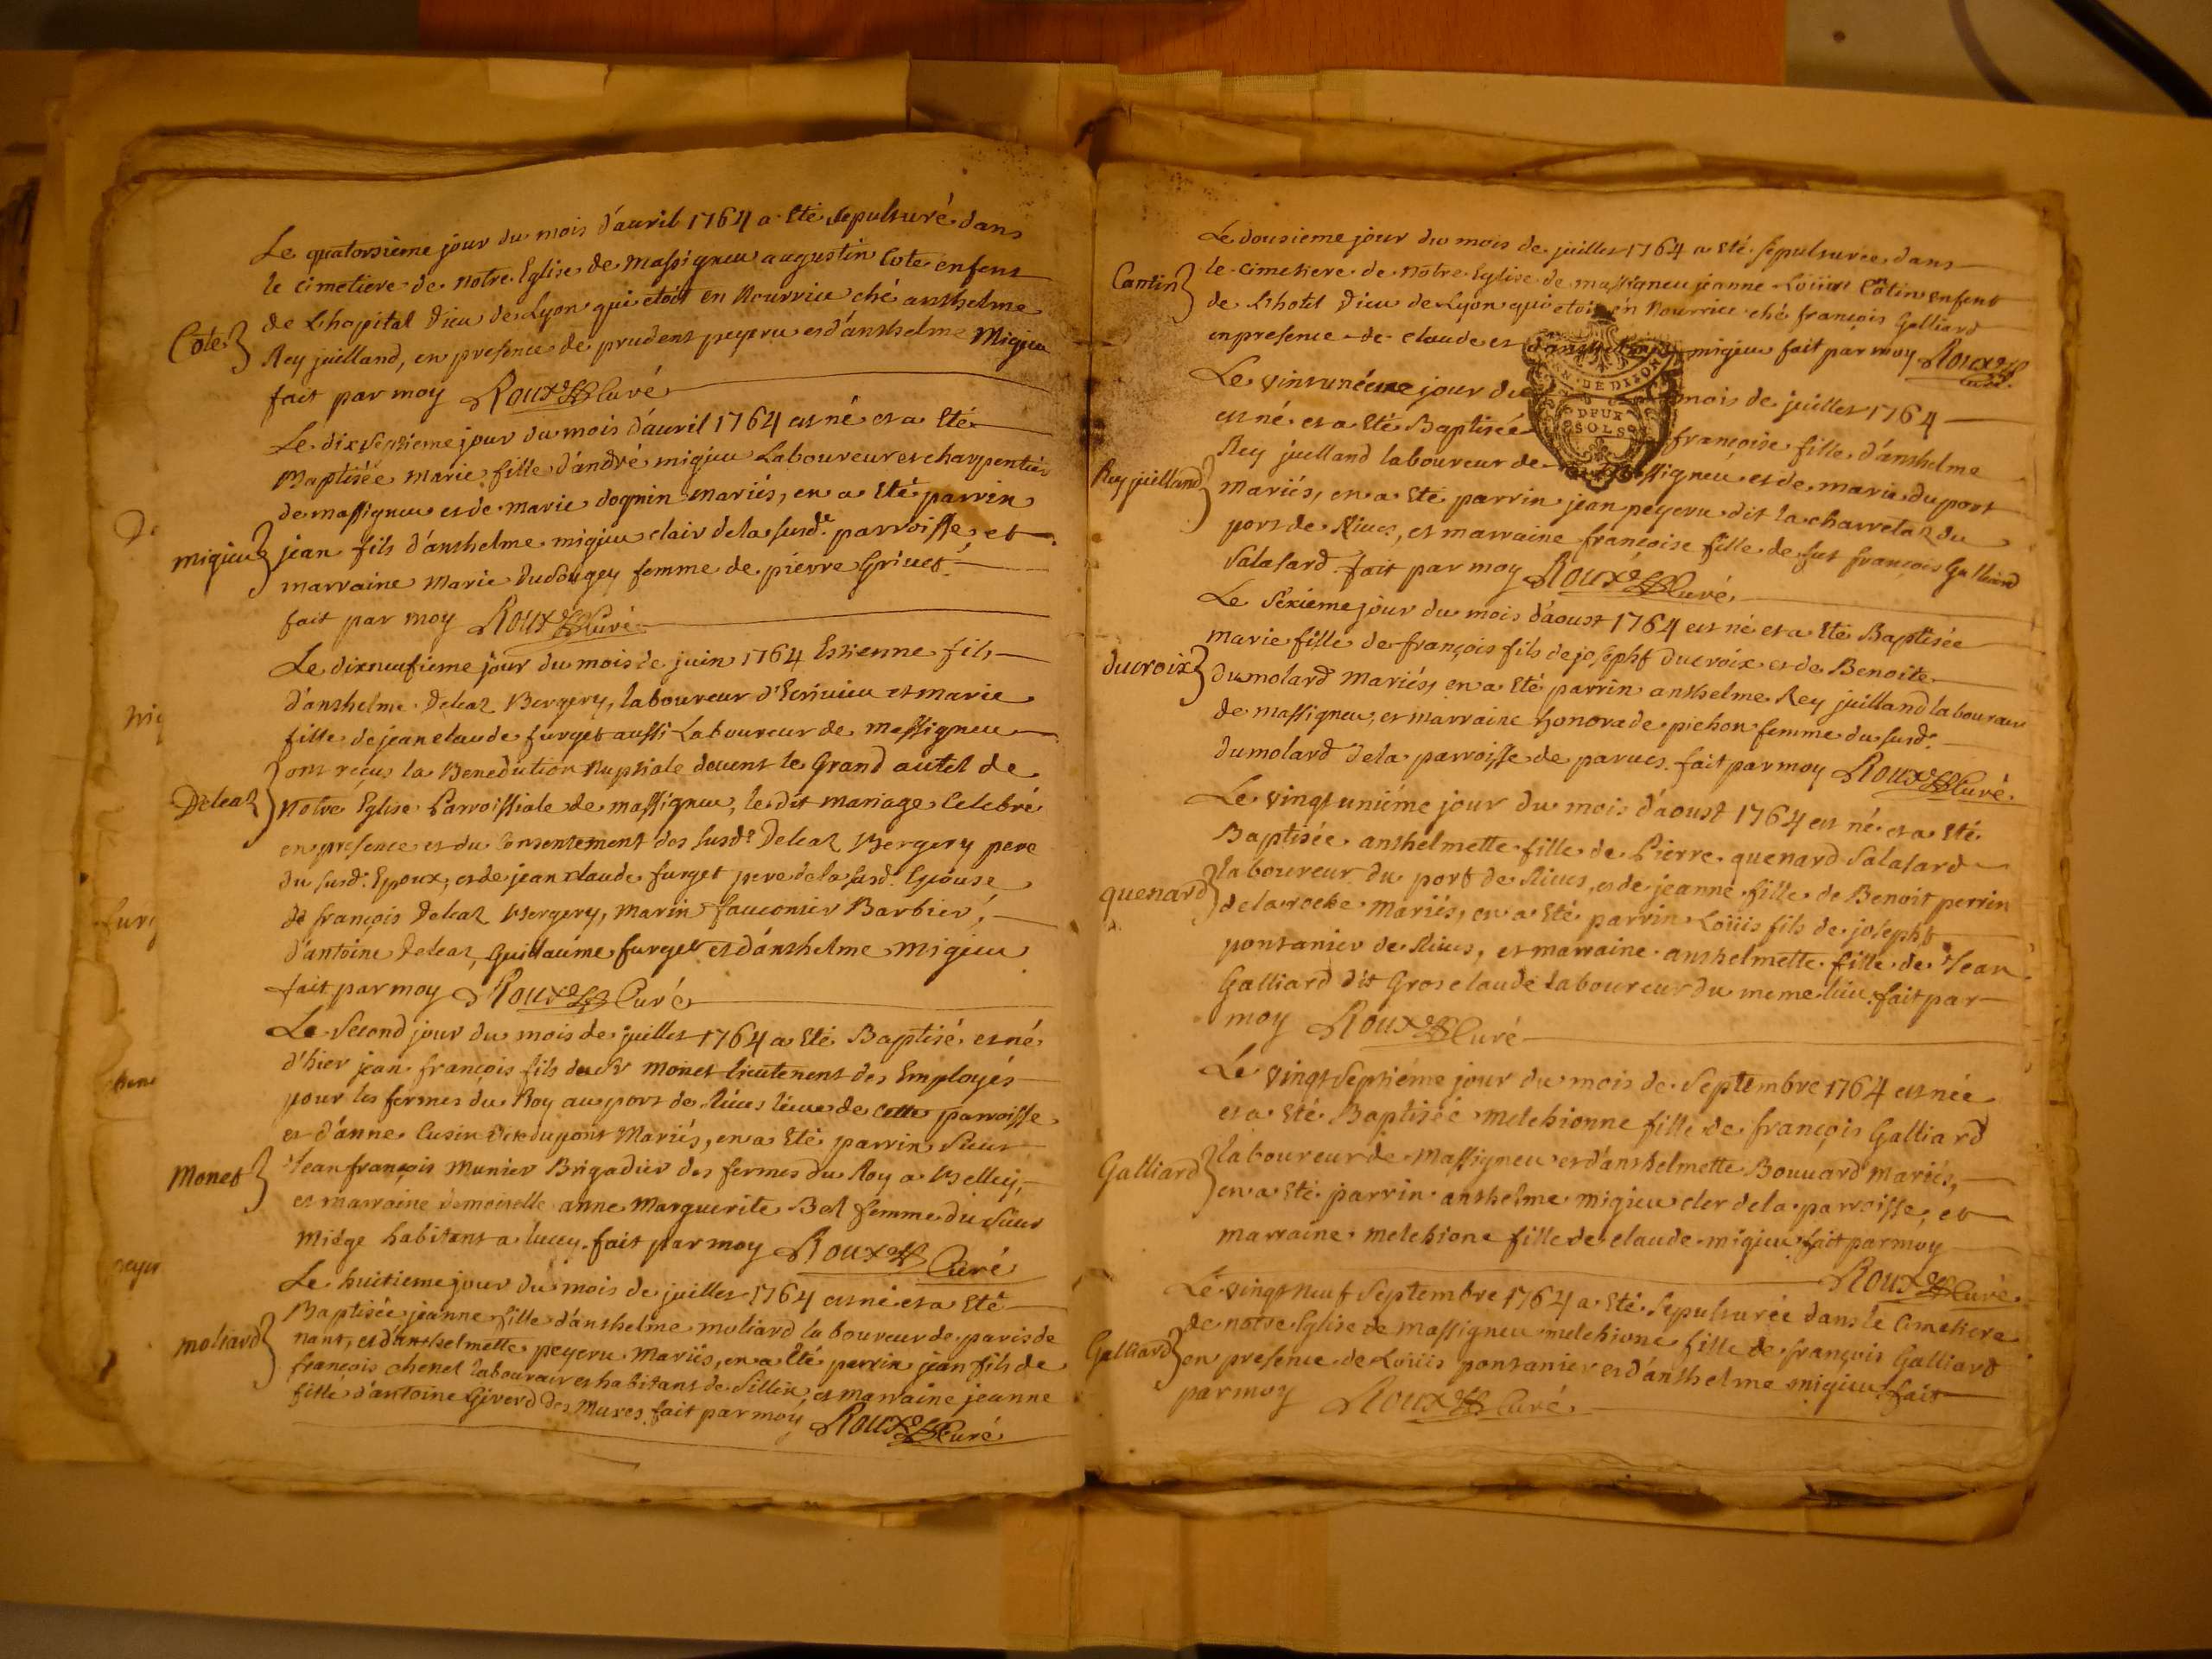 Le quatorsieme jour du mois d'auril 1764 a Eté Sepulturé dans
le cimetiere de notre Eglise de massigneu augustin Cote enfent
de L'hopital Dieu de Lyon qui etoit en Nourrice ché anthelme
Cote
Rey juilland, en presence de prudent peyeru et d'anthelme Migieu
fait par moy Roux Curé
Le dixseptieme jour du mois d'auril 1764 est né et a Eté
Baptisée marie fille d'andré migieu Laboureur et charpentier
de massigneu et de marie dognin mariés, en a Eté parrin
migieu
jean fils d'anthelme migieu clair de la susd.e parroisse, et
marraine Marie Dudougey femme de pierre Griuet
fait par moy Roux Curé
Le dixneufieme jour du mois de juin 1764 Estienne fils
d'anthelme Deleaz Bergery, laboureur d'Ecriuieu et marie
fille de jean claude furget aussi Laboureur de massigneu
ont reçus la Benediction Nuptiale deuent le Grand autel de
Deleaz
Notre Eglise Parroissiale de massigneu, le dit mariage Celebré
en presence et du Consentement des susd.s Deleaz Bergery pere
du susd. Epoux, et de jean claude furget pere de la susd. Epouse
de françois Deleaz Bergery, marin fauconier Barbier,
d'antoine Deleaz, Guillaume furget et d'anthelme migieu
fait par moy Roux Curé
Le Second jour du mois de juillet 1764 a Eté Baptisé et né
d'hier jean françois fils du Sr monet lieutenent des Employés
pour les fermes du Roy au port de lieu de cette parroisse
et d'anne Cusin dupont Mariés, en a Eté parrin Sieur
Monet
Jean françois Munier Brigadier des fermes du Roy a Belley,
et marraine demoiselle anne Marguerite Bel femme du Sieur
Miége habitant a lucey. fait par moy Roux Curé
Le huitieme jour du mois de juillet 1764 est né et a Eté
Baptisée jeanne fille d'anthelme moliard laboureur de paris de
moliard
nant, et d'anthelmette peyeru Mariés, en a Eté parrin jean fils de
françois chenel laboureur et habitant de Sillin, et marraine jeanne
fille d'antoine Giverd des Mures fait par moy Roux Curé
Le dousieme jour du mois de juillet 1764 a Eté Sepulturée dans
Cantin
le cimetiere de notre Eglise de massigneu jeanne Loüise Côtin enfent
de L'hotel Dieu de Lyon qui etoit en Nourrice ché françois Galliard
en presence de claude et d'anthelme migieu fait par moy Roux Curé
Le vintunéme jour du mois de juillet 1764
est né et a Eté Baptisée françoise fille d'anthelme
DE DIJON
DEUX
SOLS
Rey juilland laboureur de massigneu et de marie du port
Rey juilland
mariés, en a Eté parrin jean peyeru dit la charretaz du
port de, et marraine françoise fille de fut françois Galliard
Salasard. fait par moy Roux Curé
Le Séxieme jour du mois d'aoust 1764 est né et a Eté Baptisée
marie fille de françois fils de josepht ducroix et de Benoite
ducroix
dumolard mariés, en a Eté parrin anthelme Rey juilland laboureur
de massigneu, et marraine honorade pichon femme du susd.
dumolard de la parroisse de parues. fait par moy Roux Curé
Le vingt uniéme jour du mois d'aoust 1764 est né et a Eté
Baptisée anthelmette fille de Pierre quenard Salasard
laboureur du port de, et de jeanne fille de Benoit perrin
quenard
de la roche mariés, en a Eté parrin Loüis fils de josepht
pontanier de, et marraine anthelmette fille de Jean
Galliard dit Gros claude Laboureur du meme lieu. fait par
moy Roux Curé
Le vingt Septiéme jour du mois de Septembre 1764 est née
et a Eté Baptisée melchionne fille de françois Galliard
Galliard
laboureur de massigneu et d'anthelmette Bouuard mariés,
en a Eté parrin anthelme migieu cler de la parroisse, et
marraine melchione fille de claude migieu fait par moy
Roux Curé
Le vingt Neuf Septembre 1764 a Eté Sepulturée dans le Cimetiere
de notre Eglise de massigneu melchione fille de françois Galliard
Galliard
en presence de Loüis pontanier et d'anthelme migieu. fait
par moy Roux Curé